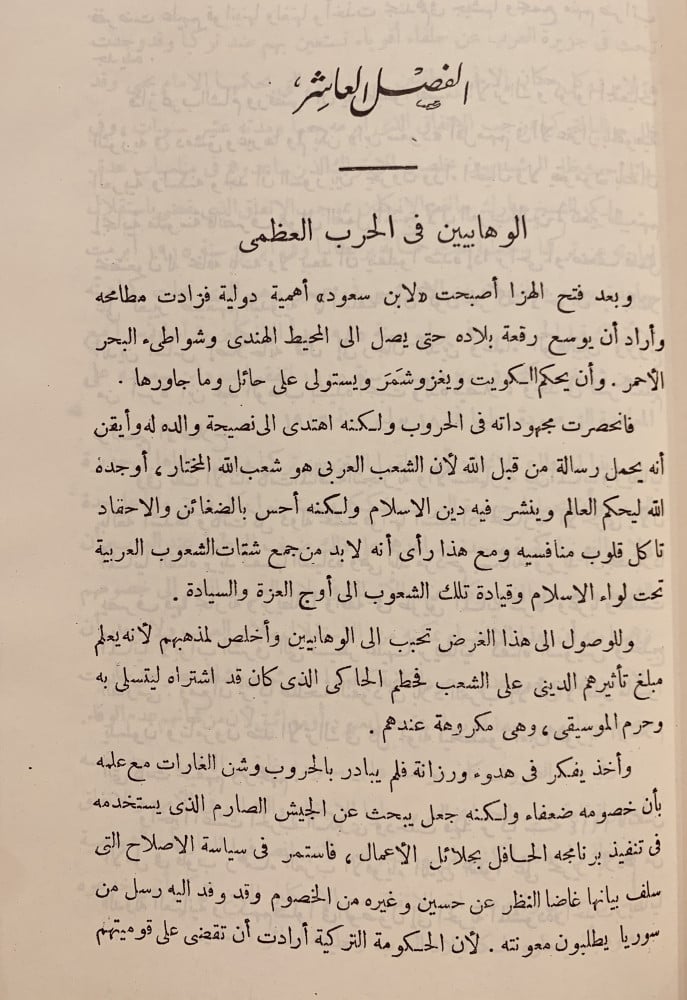 الفصل العاشر
الوهابيين فى الحرب العظمى
وبعد فتح الهزا أصبحت «لابن سعود» أهمية دولية فزادت مطامحه
وأراد أن يوسع رقعة بلاده حتى يصل الى المحيط الهندى وشواطىء البحر
الأحمر . وأن يحكم الكويت ويغزو شمَرَ ويستولى على حائل وما جاورها .
فانحصرت مجهوداته فى الحروب ولكنه اهتدى الى نصيحة والده له وأيقن
أنه يحمل رسالة من قبل الله لأن الشعب العربى هو شعب الله المختار ، أوجده
الله ليحكم العالم وينشر فيه دين الاسلام ولكنه أحس بالضغائن والاحقاد
تاكل قلوب منافسيه ومع هذا رأى أنه لابد من جمع شتات الشعوب العربية
تحت لواء الاسلام وقيادة تلك الشعوب الى أوج العزة والسيادة .
وللوصول الى هذا الغرض تحبب الى الوهابيين وأخلص لمذهبهم لأنه يعلم
مبلغ تأثيرهم الدينى على الشعب فحطم الحاكى الذى كان قد اشتراه ليتسلى به
وحرم الموسيقى ، وهى مكروهة عندهم .
وأخذ يفكر فى هدوء ورزانة فلم يبادر بالحروب وشن الغارات مع علمه
بأن خصومه ضعفاء ولكنه جعل يبحث عن الجيش الصارم الذى يستخدمه
فى تنفيذ برنامجه الحافل بجلائل الأعمال ، فاستمر فى سياسة الاصلاح التى
سلف بيانها غاضا النظر عن حسين وغيره من الخصوم وقد وفد اليه رسل من
سوريا يطلبون معونته . لأن الحكومة التركية أرادت أن تقضى على قوميتهم